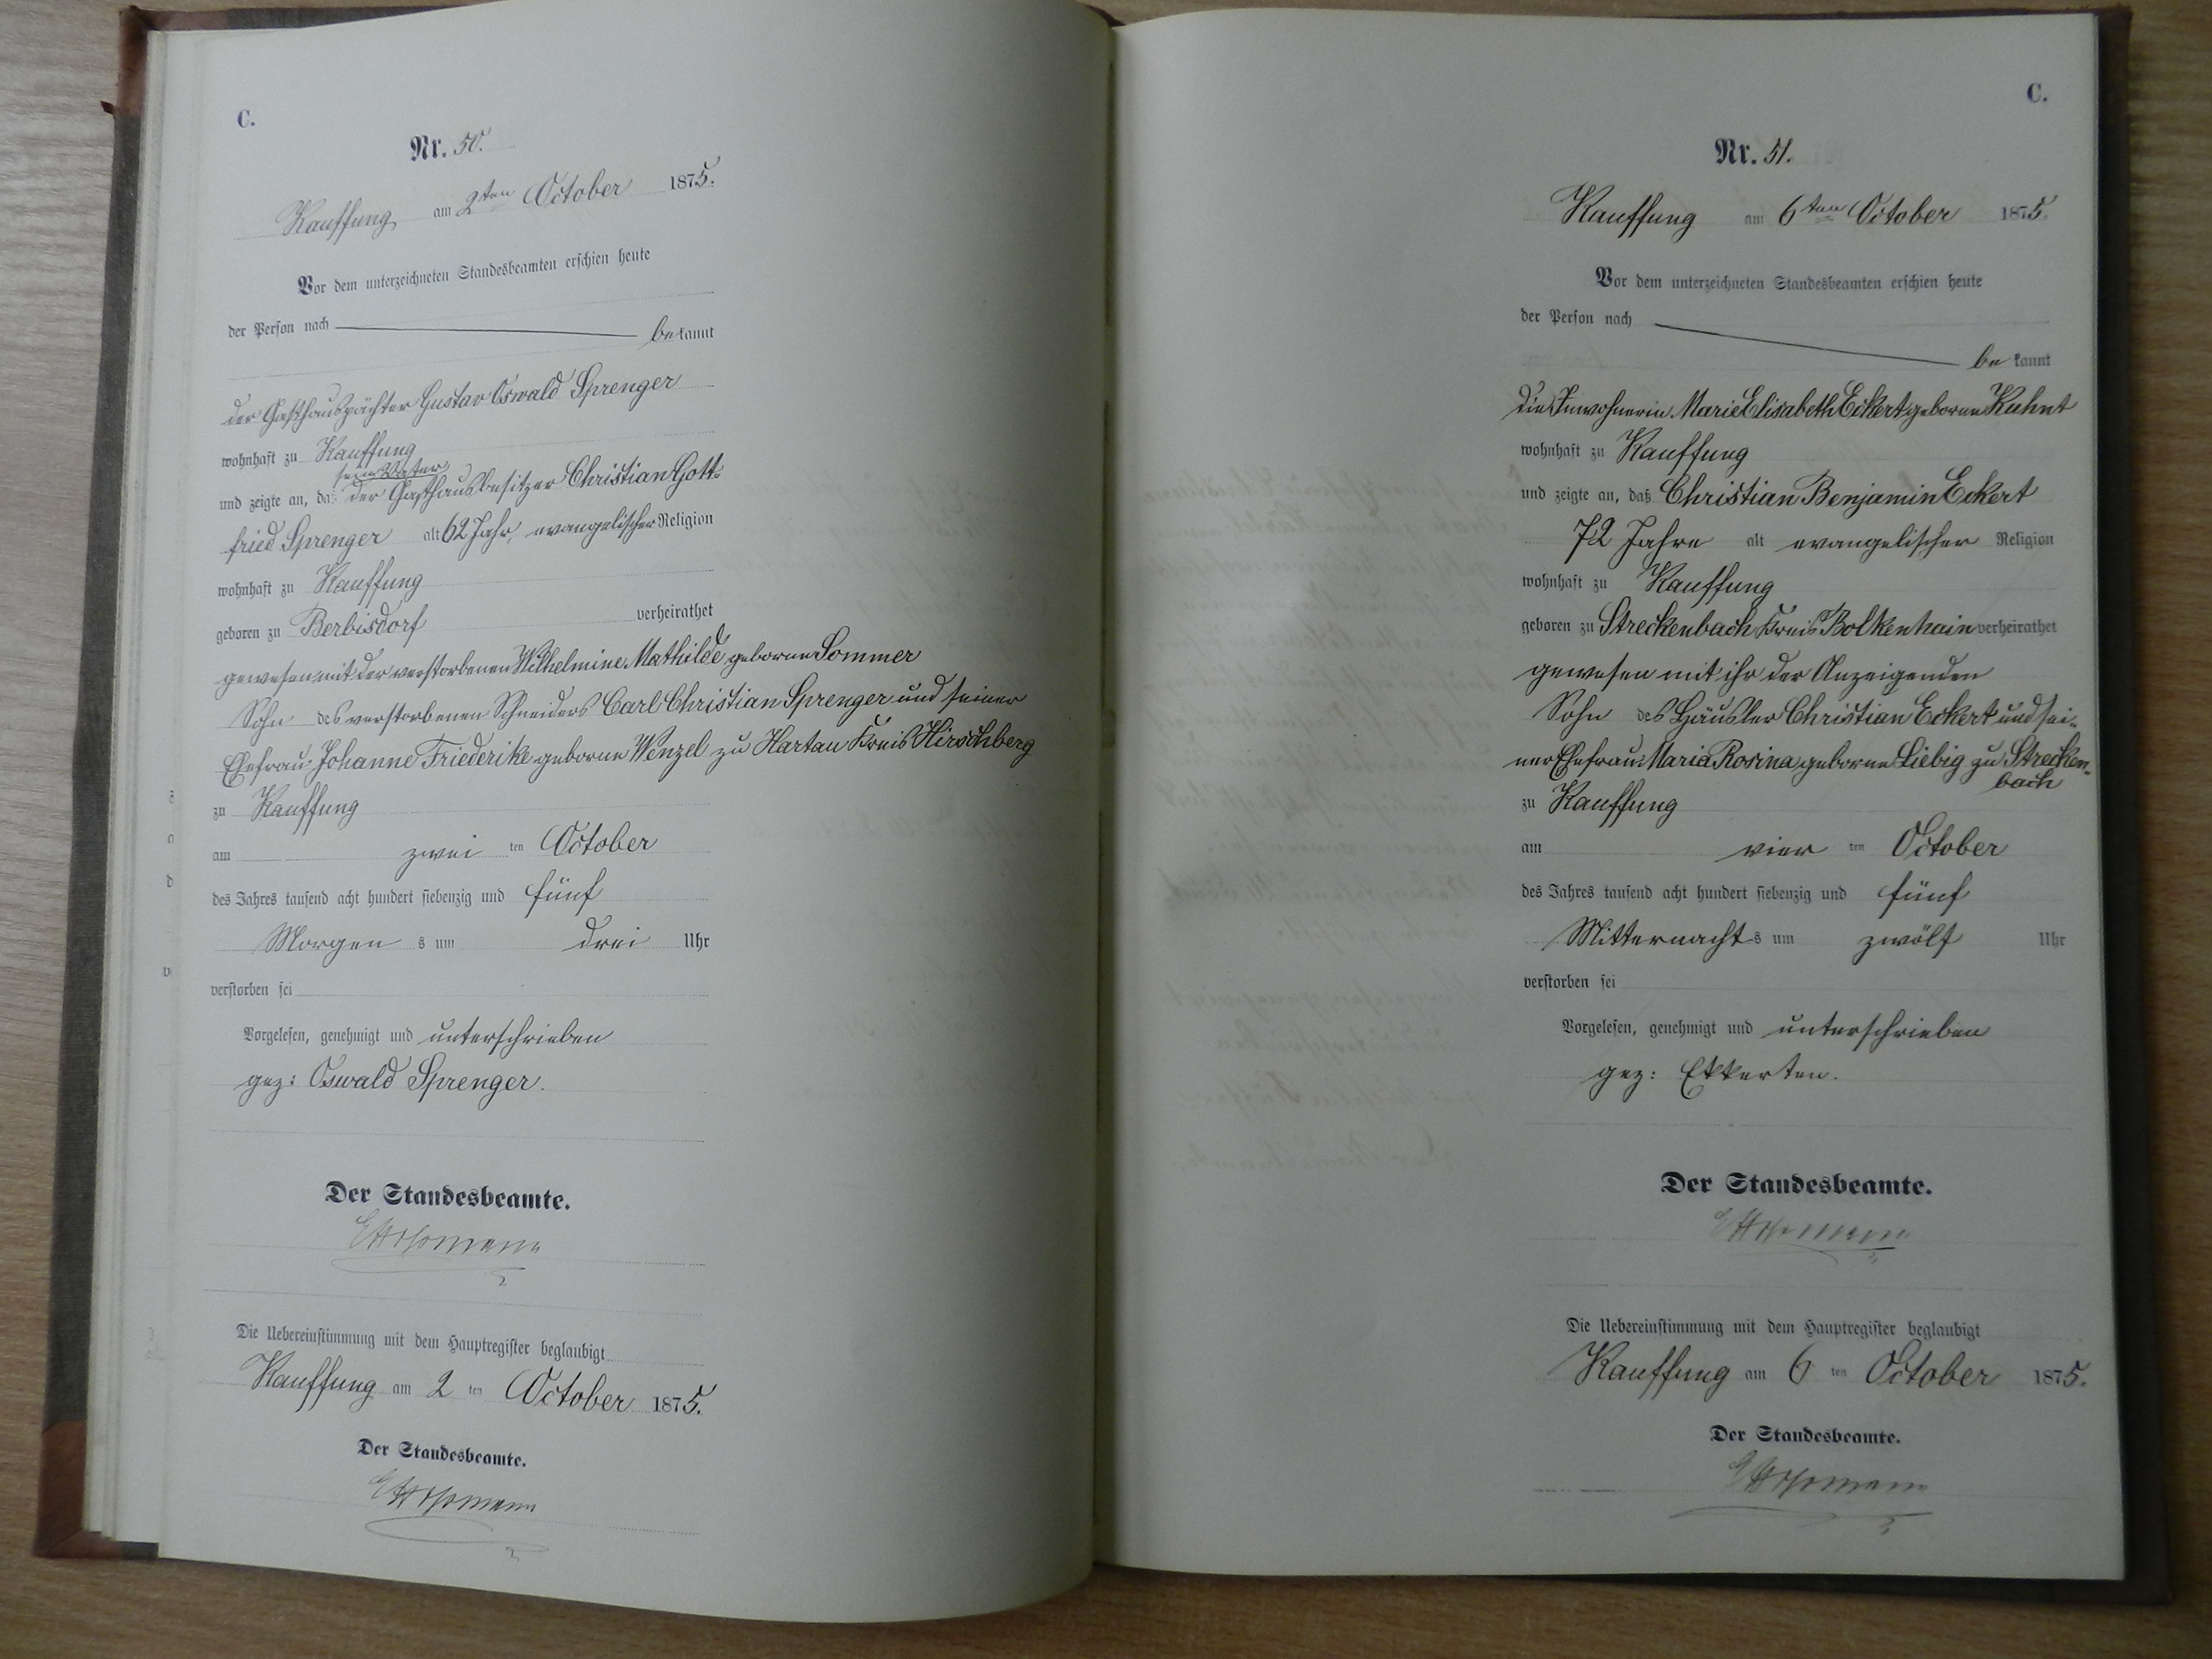 C.
Nr. 50.
Kauffung am 2ten October 1875.
Vor dem unterzeichneten Standesbeamten erschien heute
der Person nach
bekannt
der Gasthauspächter Gustav Oswald Sprenger
wohnhaft zu Kauffung
sein Vater
und zeigte an, daß der Gasthausbesitzer Christian Gott-
fried Sprenger alt 62 Jahr, evangelischer Religion
wohnhaft zu Kauffung
geboren zu Berbisdorf verheirathet
gewesen mit der verstorbenen Wilhelmine Mathilde geborne Sommer
Sohn des verstorbenen Schneiders Carl Christian Sprenger und seiner
Ehefrau Johanne Friederike geborne Wenzel zu Hartau Kreis Hirschberg
zu Kauffung
am zwei ten October
des Jahres tausend acht hundert siebenzig und fünf
Morgen s um drei Uhr
verstorben sei
Vorgelesen, genehmigt und unterschrieben
gez: Oswald Sprenger.
Der Standesbeamte.
Die Uebereinstimmung mit dem Hauptregister beglaubigt
Kauffung am 2 ten October 1875.
Der Standesbeamte.
C.
Nr. 51.
Kauffung am 6ten October 1875.
Vor dem unterzeichneten Standesbeamten erschien heute
der Person nach
bekannt
die Inwohnerin Marie Elisabeth Eckert geborne Kuhnt
wohnhaft zu Kauffung
und zeigte an, daß Christian Benjamin Eckert
72 Jahre alt evangelischer Religion
wohnhaft zu Kauffung
geboren zu Streckenbach Kreis Bolkenhain verheirathet
gewesen mit ihr der Anzeigenden
Sohn des Häusler Christian Eckert und sei-
ner Ehefrau Maria Rosina geborne Liebig zu Strecken-
bach
zu Kauffung
am vier ten October
des Jahres tausend acht hundert siebenzig und fünf
Mitternacht s um zwölf Uhr
verstorben sei
Vorgelesen, genehmigt und unterschrieben
gez: Ekkerten.
Der Standesbeamte.
Die Uebereinstimmung mit dem Hauptregister beglaubigt
Kauffung am 6 ten October 1875.
Der Standesbeamte.